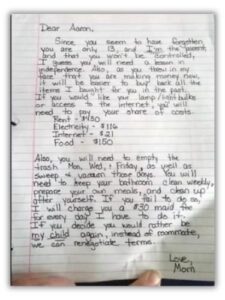 Dear Aaron,
Since you seem to have forgotten
you are only 13, and I'm the parent,
and that you won't be controlled,
I guess you will need a lesson in
independence. Also, as you threw in my
face that you are making money now,
it will be easier to buy back all the
items I bought for you in the past.
If you would like your lamp/lightbulbs
or access to the internet, you will
need to pay your share of costs.
Rent - $430
Electricity - $116
Internet - $21
Food - $150
Also, you will need to empty the
trash Mon, Wed, + Friday, as well as
sweep + vacuum those days. You will
need to keep your bathroom clean weekly,
prepare your own meals, and clean up
after yourself. If you fail to do so,
I will charge you a $30 maid fee
for every day I have to do it.
If you decide you would rather be
my child again, instead of roommates,
we can renegotiate terms.
Love,
Mom